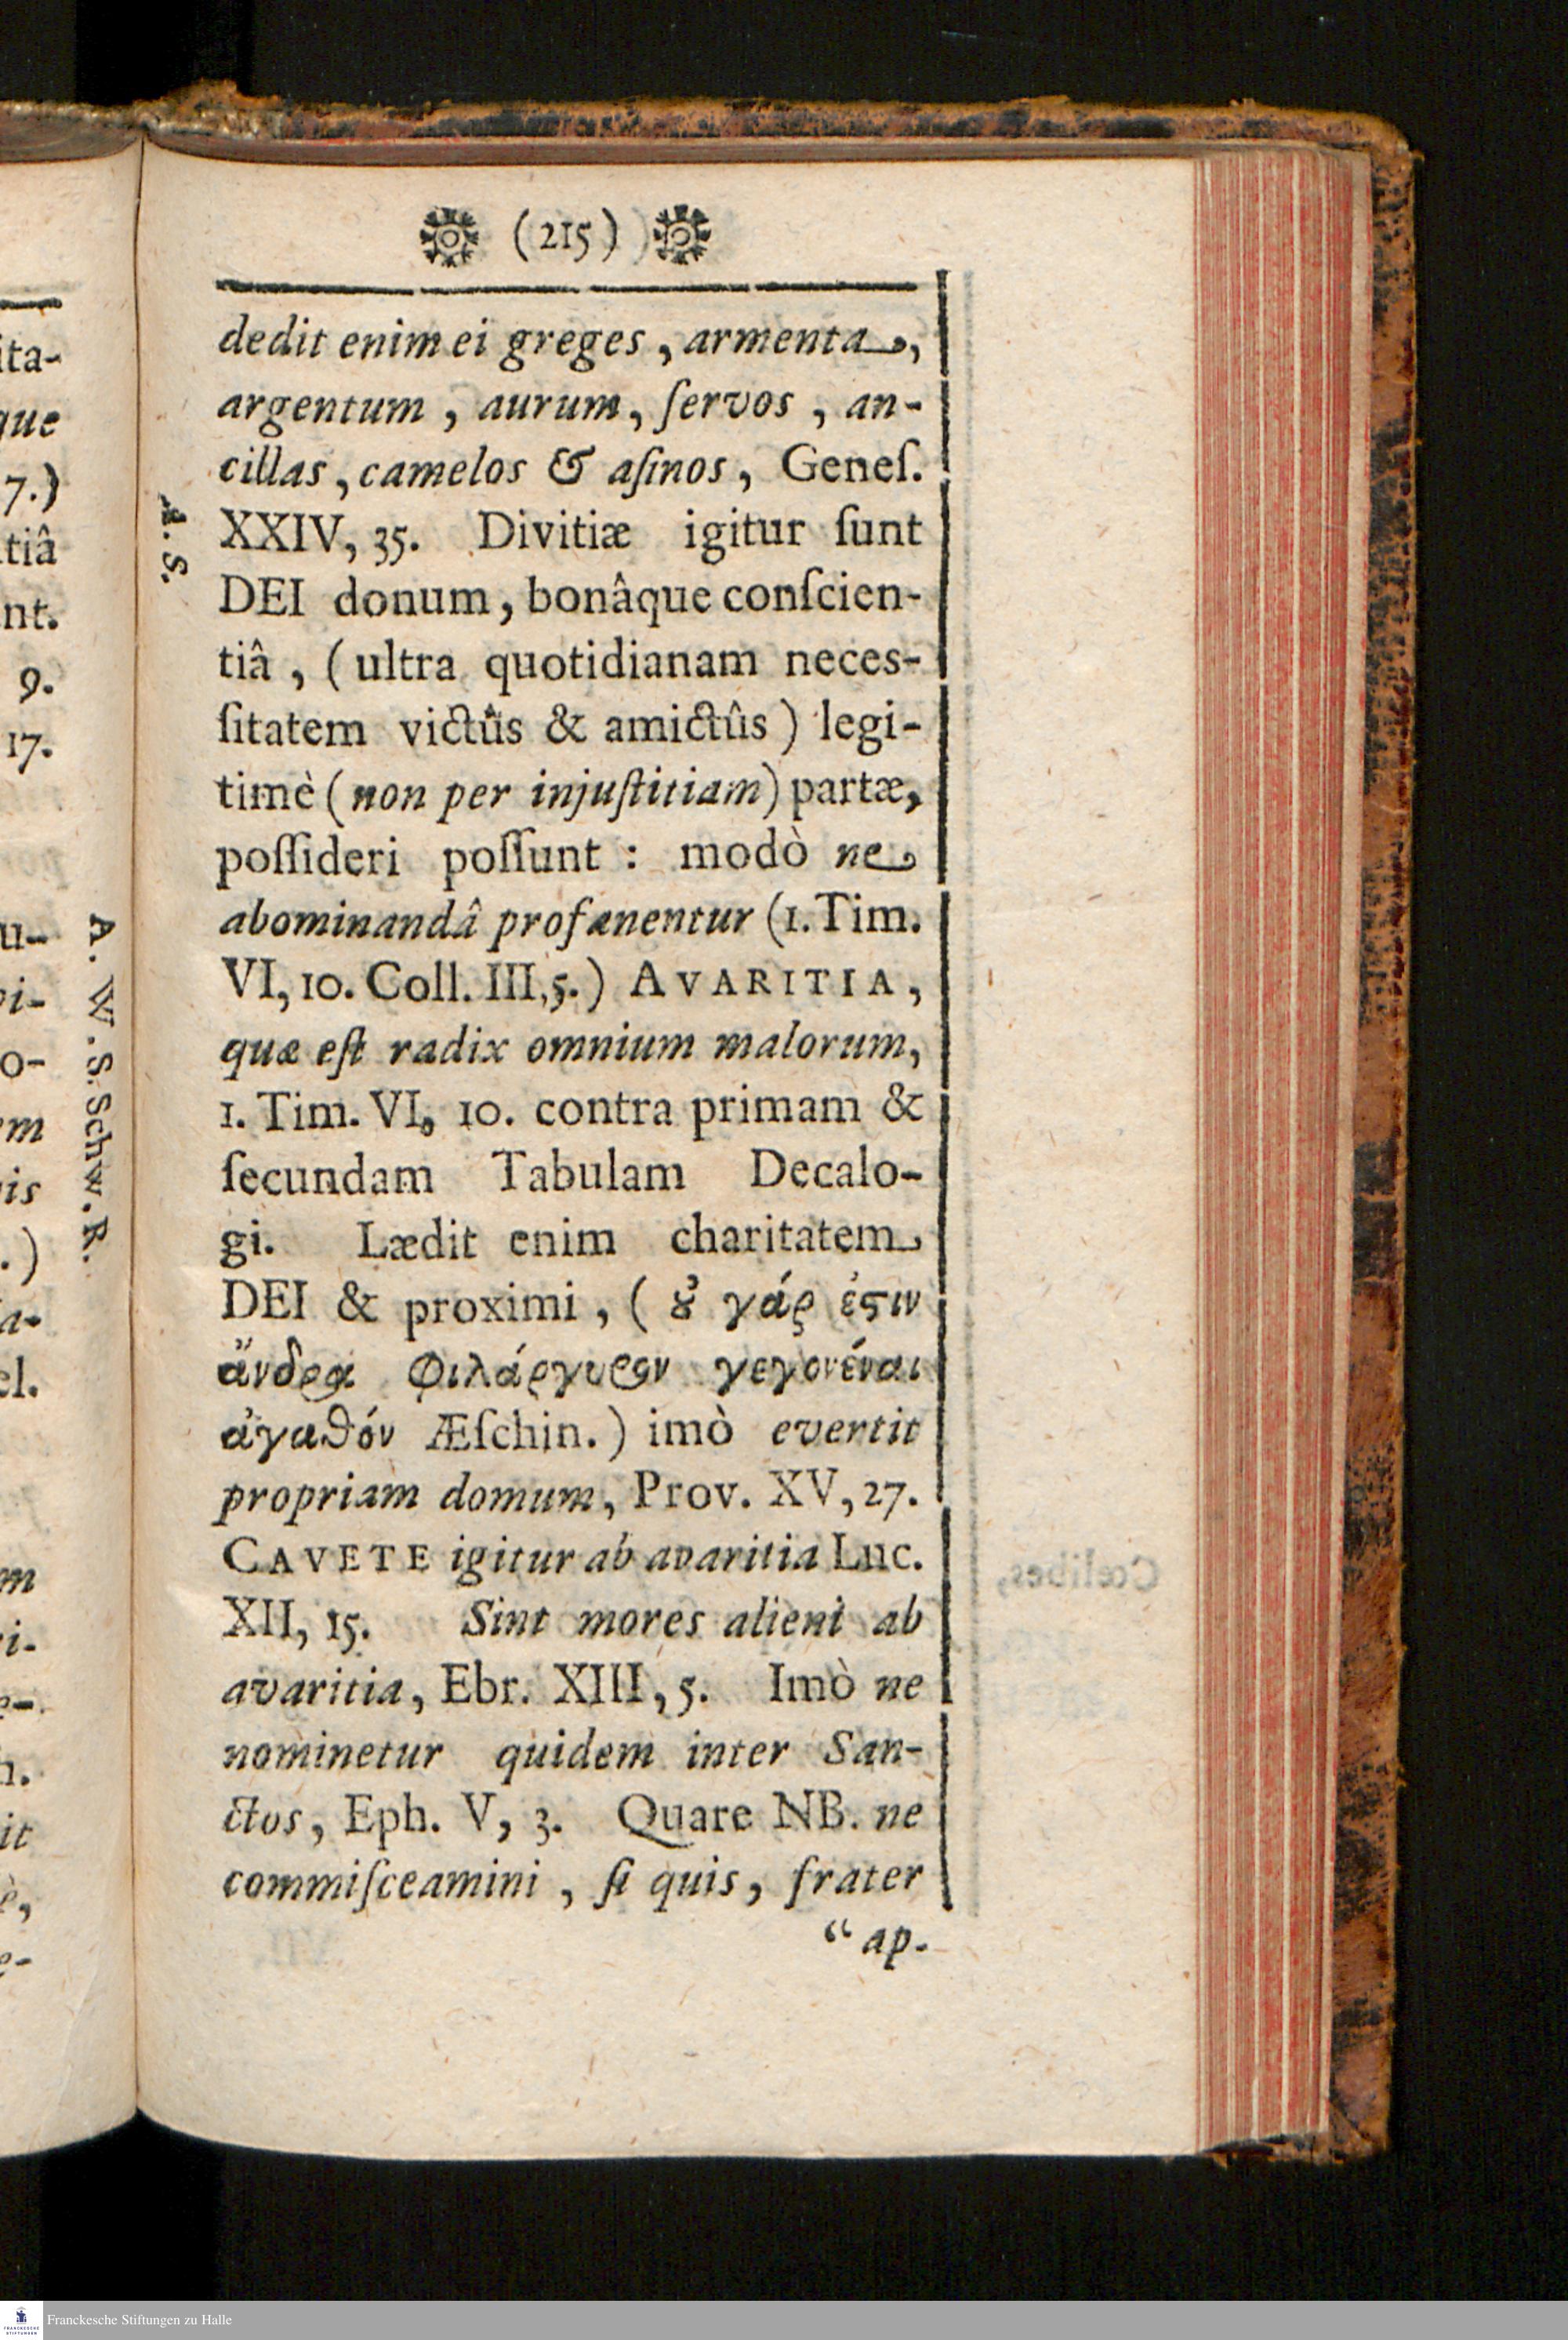 (215)
dedit enim ei greges, armenta,
argentum, aurum, ſervos, an-
cillas, camelos & aſinos, Geneſ.
XXIV, 35. Divitiæ igitur ſunt
DEI donum, bonâque conſcien-
tiâ, (ultra quotidianam neces-
ſitatem victûs & amictûs) legi-
timè (non per injuſtitiam) partæ,
poſſideri poſſunt: modò ne
abominandâ profanentur (1. Tim.
VI, 10. Coll. III, 5.) AVARITIA,
quæ eſt radix omnium malorum,
1. Tim. VI, 10. contra primam &
ſecundam Tabulam Decalo-
gi. Lædit enim charitatem
DEI & proximi, (ȣ̓ γάρ ἐϛιν
ἄνδρα φιλάργυρον γεγονέναι
ἀγαθόν Æſchin.) imò evertit
propriam domum, Prov. XV, 27.
CAVETE igitur ab avaritia Luc.
XII, 15. Sint mores alieni ab
avaritia, Ebr. XIII, 5. Imò ne
nominetur quidem inter San-
ctos, Eph. V, 3. Quare NB. ne
commiſceamini, ſi quis, frater
“ap-
A. S.
A. W. S. Schw. R.
ita-
que
7.)
tiâ
nt.
9.
17.
u-
vi-
o-
em
is
.)
a-
el.
m
i-
e-
n.
it
è,
e-
Franckesche Stiftungen zu Halle
FRANCKESCHE
STIFTUNGEN